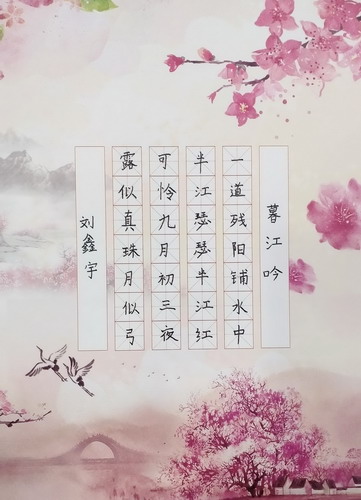 暮江吟
一道残阳铺水中
半江瑟瑟半江红
可怜九月初三夜
露似真珠月似弓
刘鑫宇